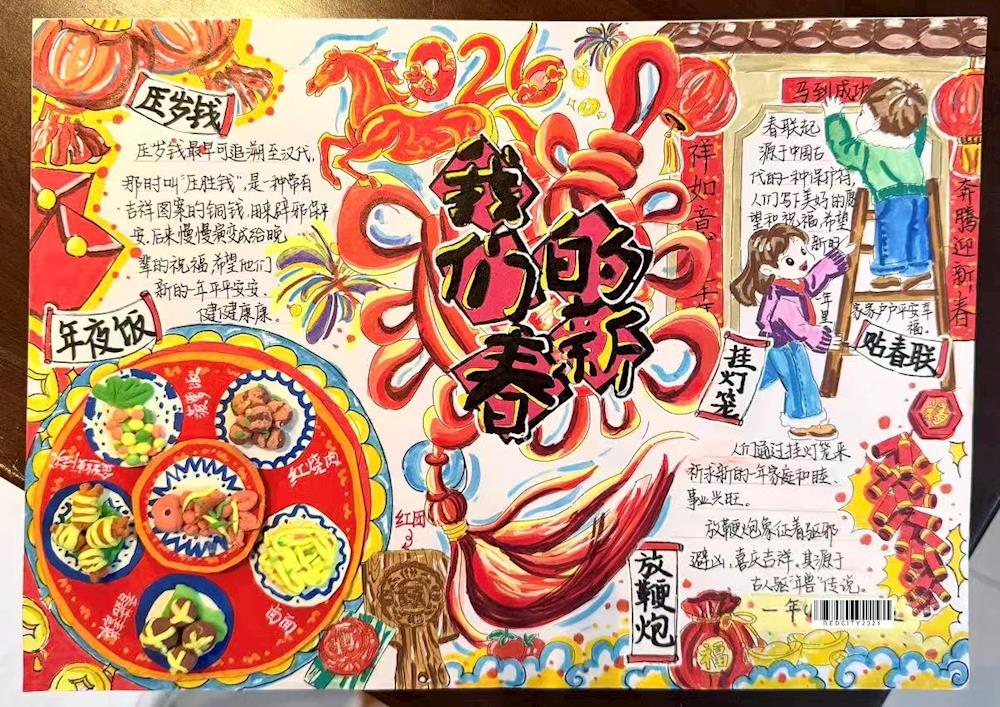 2026
我们的新春
压岁钱
压岁钱最早可追溯至汉代,
那时叫“压胜钱”,是一种带有
吉祥图案的铜钱,用来辟邪保平
安,后来慢慢演变成给晚
辈的祝福,希望他们
新的一年平平安安、
健健康康。
年夜饭
红烧肉
马到成功
春联起
源于中国古
代的一种保护符,
人们写下美好的愿
望和祝福,希望
新的
一年里
家家户户平安幸
福。
奔腾迎新春
挂灯笼
贴春联
福
人们通过挂灯笼来
祈求新的一年家庭和睦、
事业兴旺。
放鞭炮象征着驱邪
避凶,喜庆吉祥,其源于
古人驱“年兽”传说。
放鞭炮
一年
REDCITY2026
福